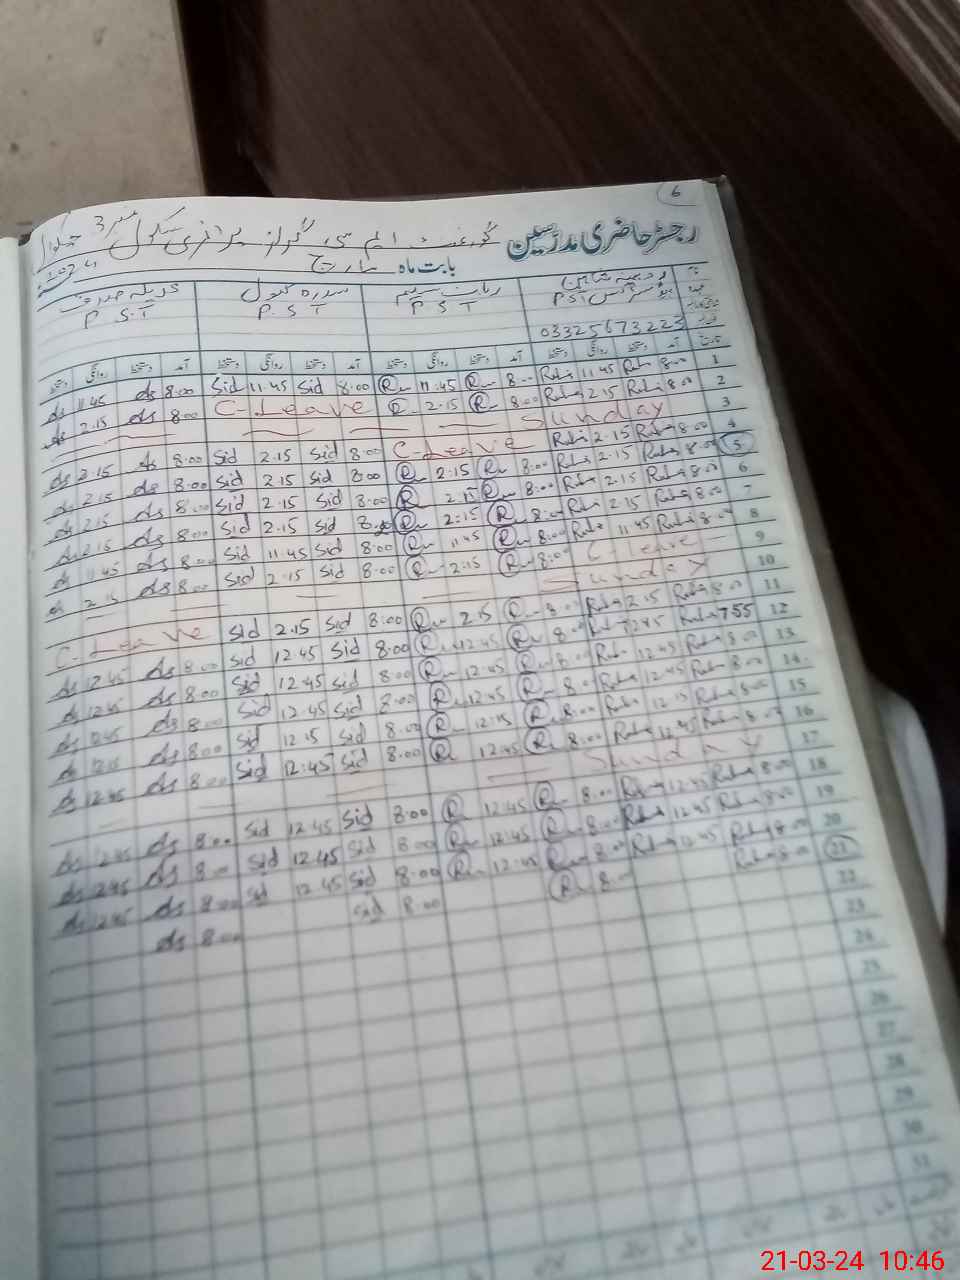 6
رجسٹر حاضری مدرسین گورنمنٹ ایم سی گرلز پرائمری سکول نمبر 3 چکوال
بابت ماہ مارچ 2024
روبینہ شاہین
P S T P.S.T P S.T
03325673223
تاریخ آمد دستخط روانگی دستخط آمد دستخط روانگی دستخط آمد دستخط روانگی دستخط آمد دستخط روانگی دستخط
As 11.45 As 8.00 Sid 11.45 Sid 8.00 R 11.45 R 8.00 Rubi 11.45 Rubi 8.00 1
As 2.15 As 8.00 C-Leave R 2.15 R 8.00 Rubi 2.15 Rubi 8.00 2
Sunday 3
As 2.15 As 8.00 Sid 2.15 Sid 8.00 C-Leave Rubi 2.15 Rubi 8.00 4
As 2.15 As 8.00 Sid 2.15 Sid 8.00 R 2.15 R 8.00 Rubi 2.15 Rubi 8.00 5
As 2.15 As 8.00 Sid 2.15 Sid 8.00 R 2.15 R 8.00 Rubi 2.15 Rubi 8.00 6
As 2.15 As 8.00 Sid 2.15 Sid 8.00 R 2:15 R 8.00 Rubi 2.15 Rubi 8.00 7
As 11.45 As 8.00 Sid 11.45 Sid 8.00 R 11.45 R 8.00 Rubi 11.45 Rubi 8.00 8
As 2.15 As 8.00 Sid 2.15 Sid 8.00 R 2:15 R 8.00 C-Leave 9
Sunday 10
C-Leave Sid 2.15 Sid 8.00 R 2.15 R 8.00 Rubi 2.15 Rubi 8.00 11
As 12.45 As 8.00 Sid 12.45 Sid 8.00 R 12.45 R 8.00 Rubi 12.45 Rubi 7.55 12
As 12.45 As 8.00 Sid 12.45 Sid 8.00 R 12.45 R 8.00 Rubi 12.45 Rubi 8.00 13
As 12.45 As 8.00 Sid 12.45 Sid 8.00 R 12.45 R 8.00 Rubi 12.45 Rubi 8.00 14
As 12.15 As 8.00 Sid 12.15 Sid 8.00 R 12.15 R 8.00 Rubi 12.15 Rubi 8.00 15
As 12.45 As 8.00 Sid 12:45 Sid 8.00 R 12.45 R 8.00 Rubi 12.45 Rubi 8.00 16
Sunday 17
As 12.45 As 8.00 Sid 12.45 Sid 8.00 R 12.45 R 8.00 Rubi 12.45 Rubi 8.00 18
As 12.45 As 8.00 Sid 12.45 Sid 8.00 R 12.45 R 8.00 Rubi 12.45 Rubi 8.00 19
As 12.45 As 8.00 Sid 12.45 Sid 8.00 R 12.45 R 8.00 Rubi 12.45 Rubi 8.00 20
As 8.00 Sid 8.00 R 8.00 Rubi 8.00 21
22
23
24
25
26
27
28
29
30
31
21-03-24 10:46